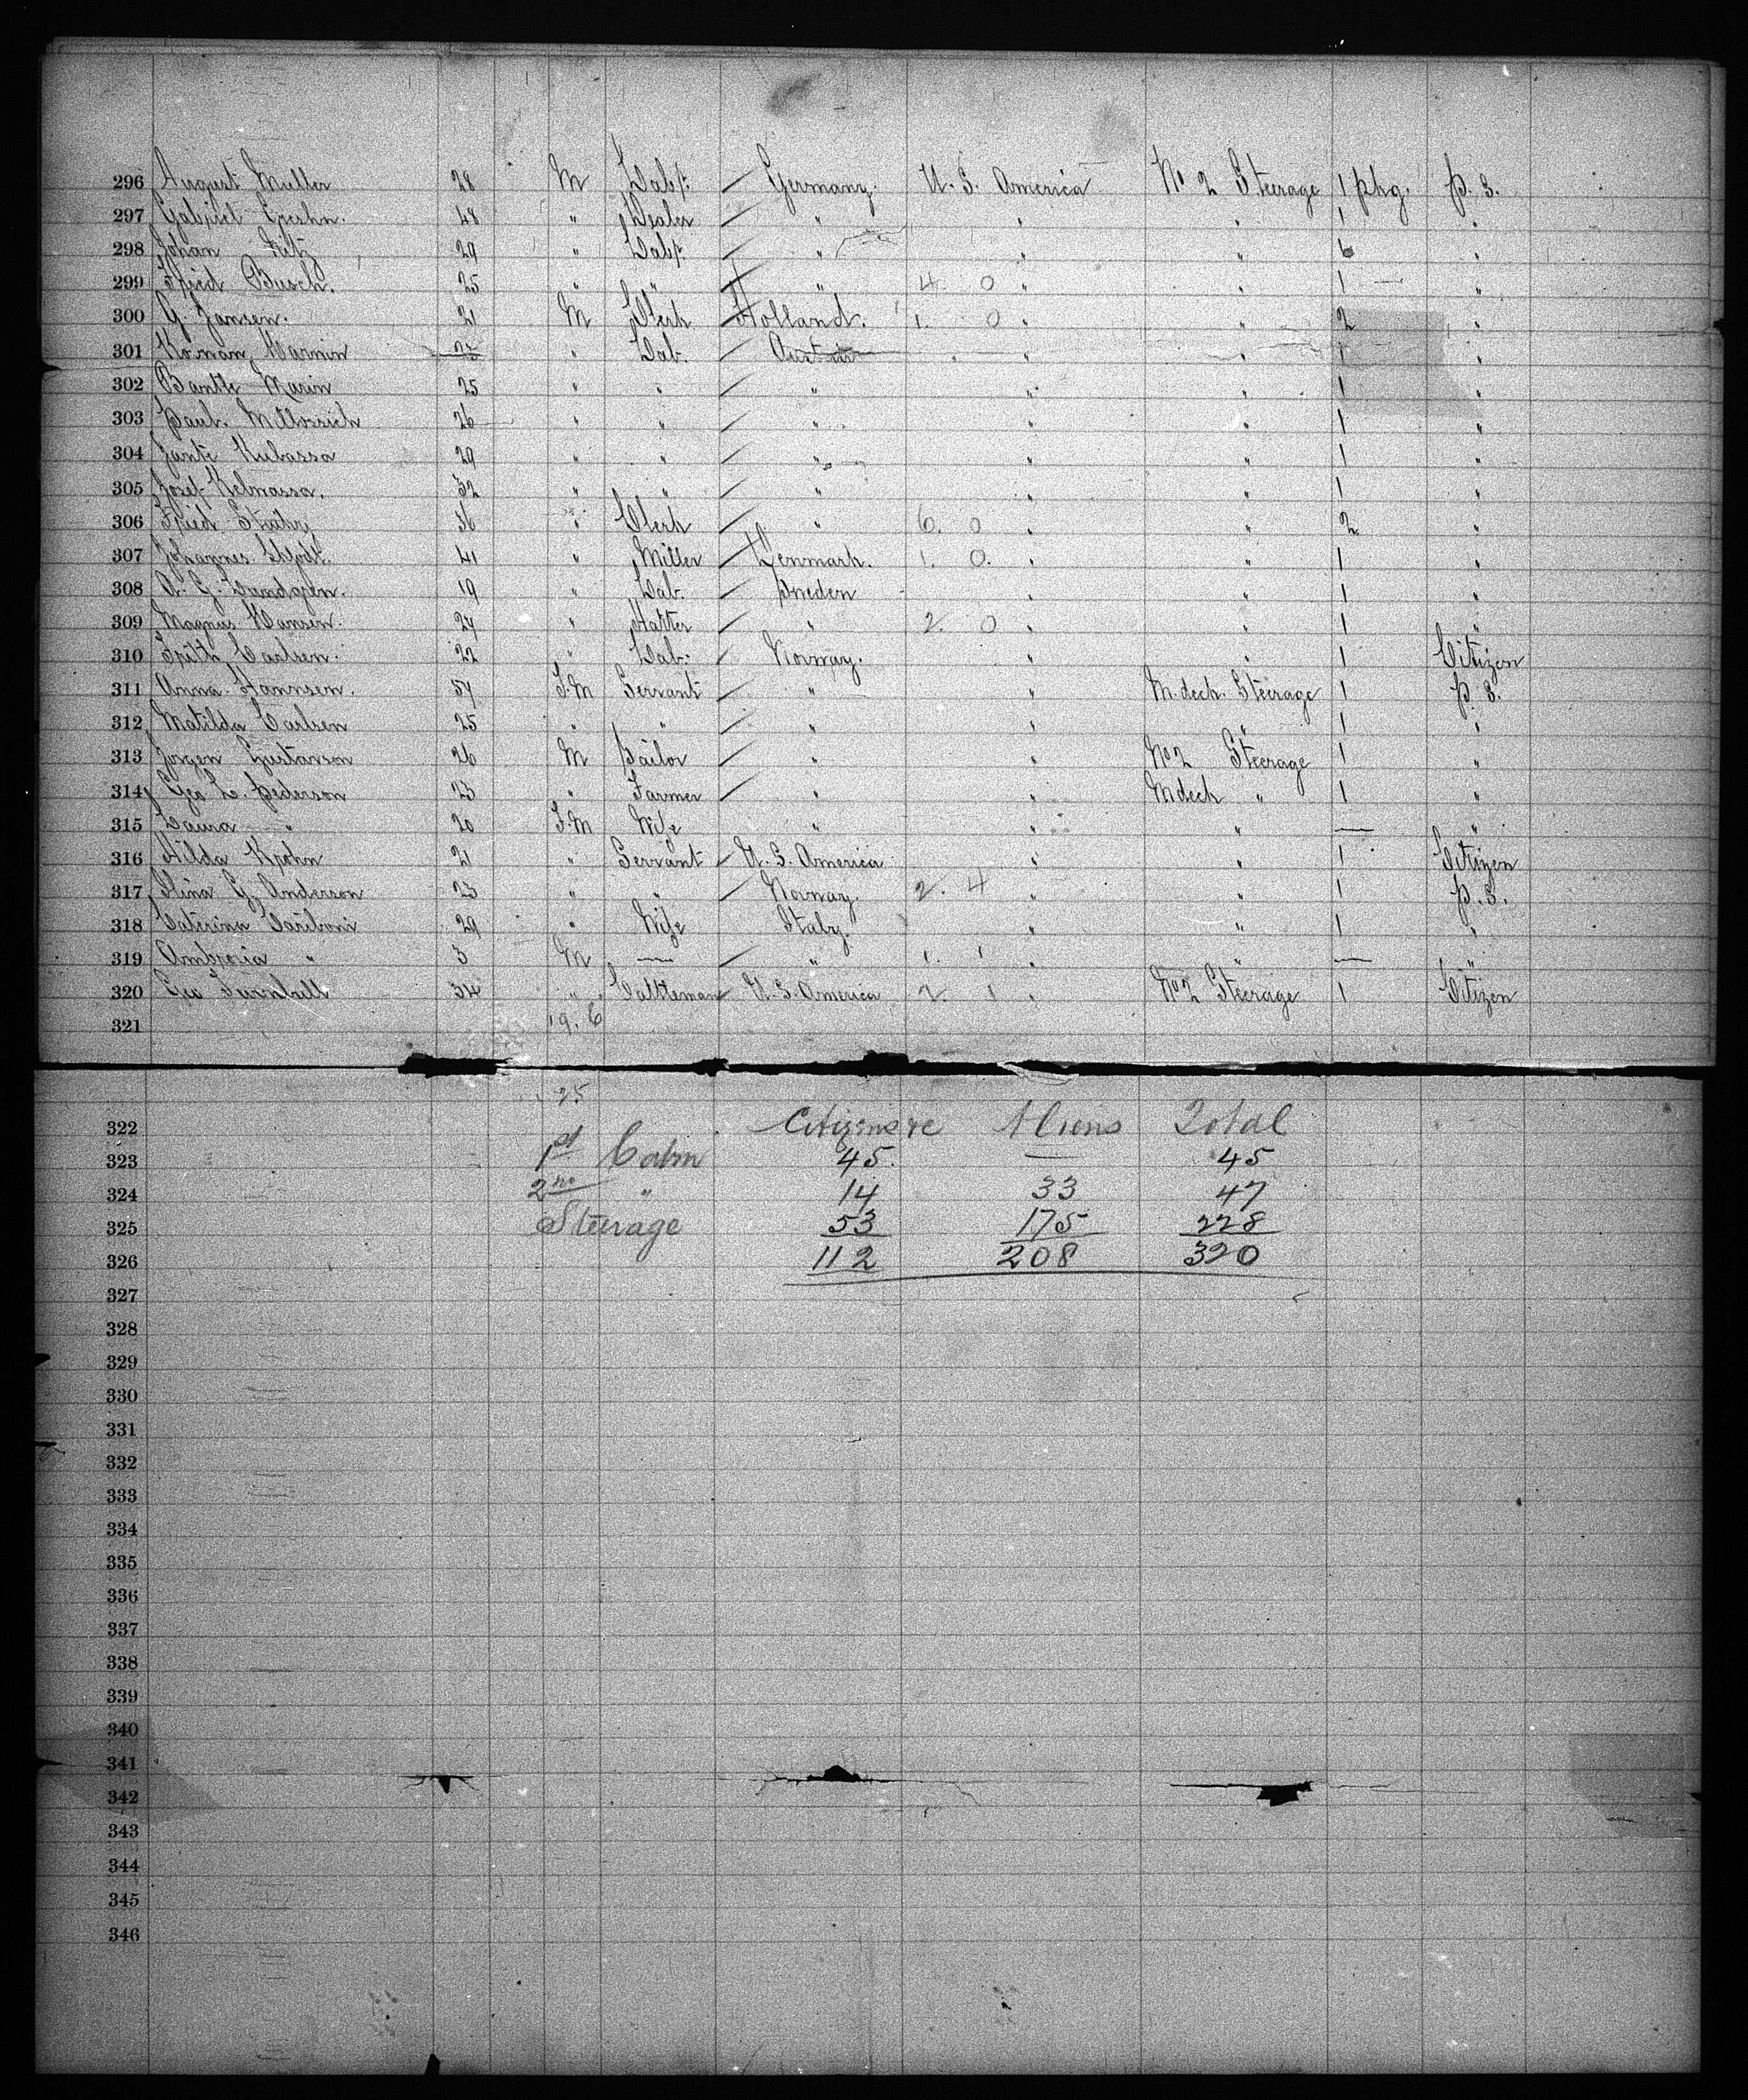 296 August Muller 28 M Lab. Germany. U. S. America No 2 Steerage 1 pkg. P. S.
297 Gabriel 48 " Dealer " " " 1 "
298 Johan 29 " Lab. " " " 6 "
299 Fried Busch. 25 " " " 4. 0 " " 1 "
300 G. Jansen. 21 M Clerk Holland. 1. 0 " " 2 "
301 " Lab. Austria " " 1 "
302 Marin 25 " " " " " 1 "
303 Paul. 26 " " " " " 1 "
304 29 " " " " " 1 "
305 Josef 32 " " " " " 1 "
306 Fried 36 " Clerk " 6. 0 " " 2 "
307 Johannes 41 " Miller Denmark. 1. 0. " " 1 "
308 A. G. Lundgren. 19 " Lab. Sweden " " 1 "
309 Magnus Hansen. 24 " Hatter " 2. 0 " " 1 "
310 Carlsen. 22 " Lab. Norway. " " 1 Citizen
311 Anna Hannsen. 57 F.M Servant " " M. deck. Steerage 1 P. S.
312 Matilda Carlsen 25 " " " " " 1 "
313 Jorgen Gustavson 26 M Sailor " " No 2 Steerage 1 "
314 Geo L. Pederson 23 " Farmer " " M deck " 1 "
315 Laura " 20 F.M Wife " " " — "
316 Hilda Krohn 21 " Servant U. S. America " " 1 Citizen
317 Stina G. Anderson 23 " " Norway. 2. 4 " " 1 P. S.
318 Caterina Cariboni 29 " Wife Italy. " " 1 "
319 Ambrosia " 3 M — " 1. 1 " " — "
320 Geo Turnbull 34 " Cattleman U. S. America 2. 1 " No 2 Steerage 1 Citizen
19. 6
321
25
322 Citizens Aliens Total
323 1st Cabin 45. — 45
324 2nd " 14 33 47
325 Steerage 53 175 228
326 112 208 320
327
328
329
330
331
332
333
334
335
336
337
338
339
340
341
342
343
344
345
346